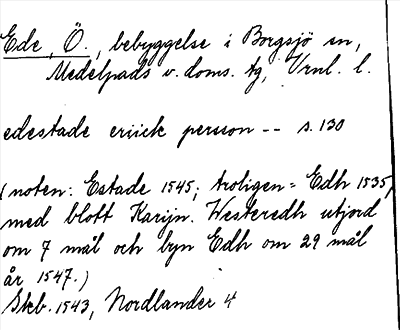 Ede, Ö., bebyggelse i Borgsjö sn,
Medelpads v. doms. tg, Vrnl. l.
edestade eriick person -- s. 130
(noten: Estade 1545; troligen = Edh 1535,
med blott Karijn. Westeredh utjord
om 7 mål och byn Edh om 29 mål
år 1547.)
Skb. 1543, Nordlander 4